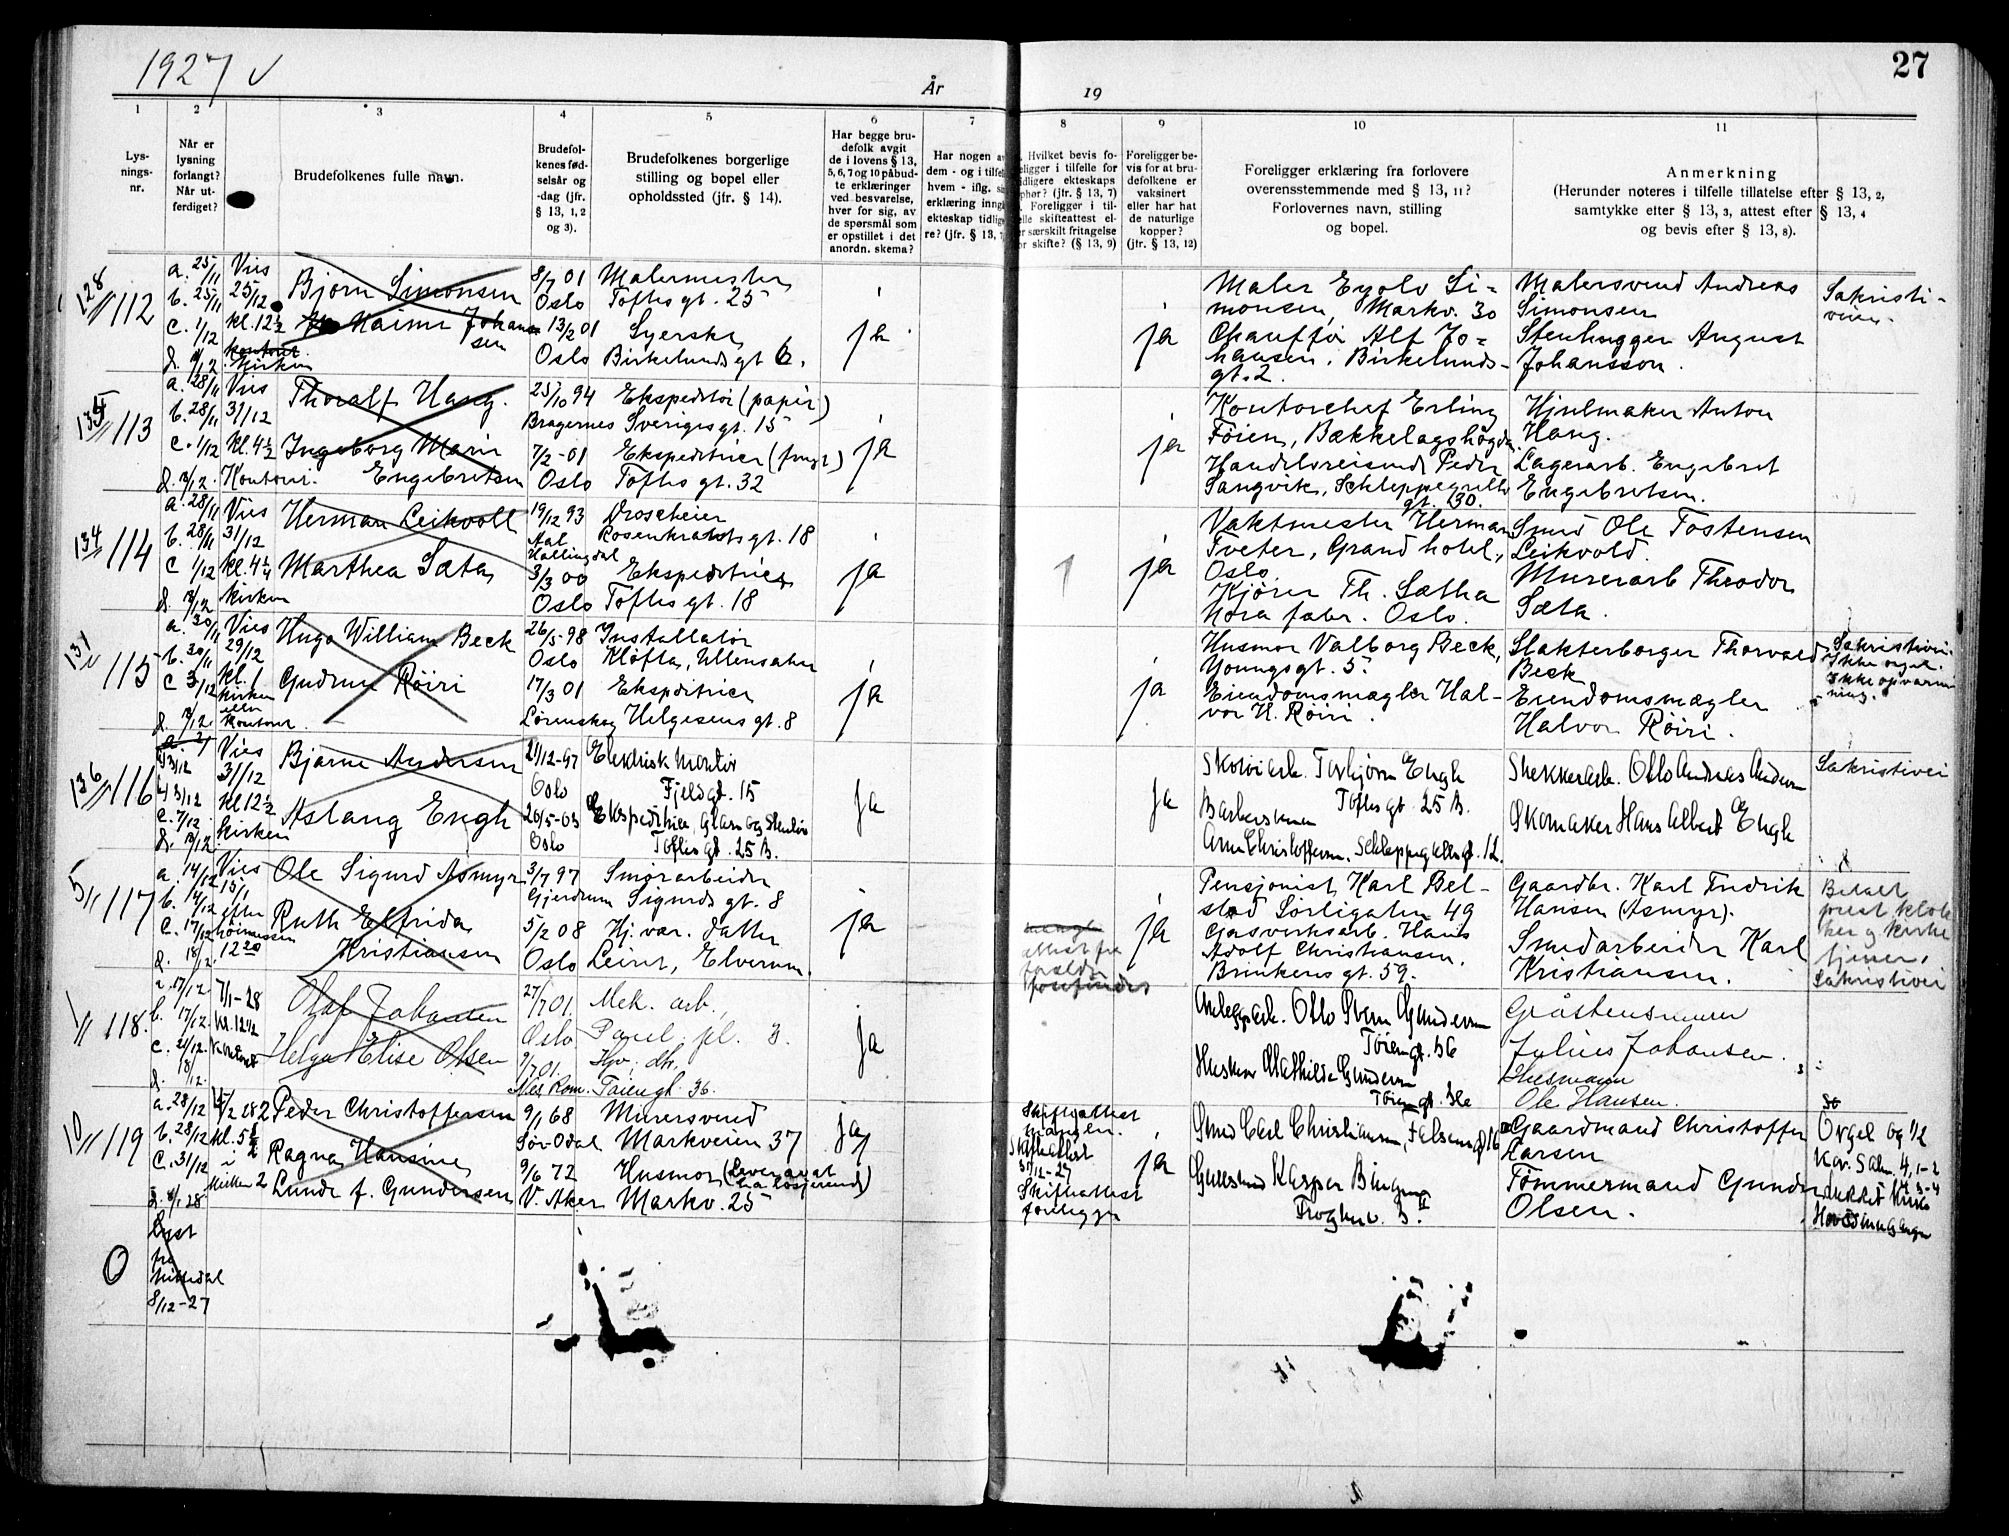 1927 ✓
År
19
27
1
2
3
4
5
6
7
8
9
10
11
Lys-
nings-
nr.
Når er
lysning
forlangt?
Når ut-
ferdiget?
Brudefolkenes fulle navn.
Brudefol-
kenes fød-
selsår og
-dag (jfr.
§ 13, 1, 2
og 3).
Brudefolkenes borgerlige
stilling og bopel eller
opholdssted (jfr. § 14).
Har begge bru-
defolk avgit
de i lovens § 13,
5, 6, 7 og 10 påbud-
te erklæringer
ved besvarelse,
hver for sig, av
de spørsmål som
er opstillet i det
anordn. skema?
Har nogen av
dem - og i tilfelle
hvem - iflg. si
erklæring inngå
ekteskap tidlige
re? (jfr. § 13, 7
Hvilket bevis fo-
eligger i tilfelle for
idligere ekteskaps
phør? (jfr. § 13, 7)
Foreligger i til-
elle skifteattest el-
r særskilt fritagelse
or skifte? (§ 13, 9)
Foreligger be-
vis for at bru-
defolkene er
vaksinert
eller har hat
de naturlige
kopper?
(jfr. § 13, 12)
Foreligger erklæring fra forlovere
overensstemmende med § 13, 11?
Forlovernes navn, stilling
og bopel.
Anmerkning
(Herunder noteres i tilfelle tillatelse efter § 13, 2,
samtykke efter § 13, 3, attest efter § 13, 4
og bevis efter § 13, 8).
128
112
a. 25/11
b. 25/11
c. 1/12
Vies
25/12
kl. 12½
kontoret
Kirken
Bjørn Simonsen
Haimi Johan
sen
8/7 01
Oslo
13/2 01
Oslo
Malermester
Toftes gt. 25
Syerske
Birkelunds gt 2.
ja
ja
Maler Eyolv Si-
monsen, Markv. 30
Chauffør Alf Jo-
hansen, Birkelunds-
gt. 2.
Malersvend Andreas
Simonsen
Stenhugger August
Johansson.
Sakristi-
veien
113
a. 28/11
b. 28/11
c. 1/12
Vies
31/12
kl. 4½
Kontoret.
Thoralf Haug.
Ingeborg Marie
Engebretsen
25/10 94
Bragernes
7/2-01
Oslo
Ekspeditør (papir)
Sverigesgt. 15
Ekspeditrice
Toftes gt. 32
ja
ja
Kontorchef Erling
Føien, Bækkelagshøgda
Handelsreisende Peder
Sangvik, Schleppegrells
gt. 30.
Hjulmaker Anton
Haug.
Lagerarb. Engebret
Engebretsen.
134
114
a. 28/11
b. 28/11
c 1/12
Vies
31/12
kl. 4¼
Kirken
Herman Leikvoll
Marthea Sæta
19/12 93
Aal
Hallingdal
3/3 00
Oslo
Droscheier
Rosenkrantz gt. 18
Ekspeditrice
Toftes gt. 18
ja
1
ja
Vaktmester Herman
Tveter, Grand hotel,
Oslo.
Kjører Th. Sætha
Nora fabr. Oslo.
Smed Ole Tostensen
Leikvold.
Murerarb Theodor
Sæta.
131
115
a. 30/11
b. 30/11
c 3/12
Vies
29/12
kl. 1
Kirken
eller
kontoret.
Hugo William Beck
Gudrun Røiri
26/5-98
Oslo
17/3 01
Lørenskog
Installatør
Kløfta, Ullensaker
Ekspeditrice
Helgesens gt. 8
ja
ja
Husmor Valborg Beck,
Youngsgt. 5.
Eiendomsmægler Hal-
vor H. Røiri.
Slakterborger Thorvald
Beck
Eiendomsmægler
Halvor Røiri.
Sakristivei.
Ikke orgel.
Ikke opvarm-
ning.
136
116
3/12
b 3/12
c. 7/12
Vies
31/12
kl 12½
Kirken
Bjarne Andersen
Aslaug Engh
21/12-97
Oslo
26/5-03
Oslo
Elektrisk montør
Fjeldgt. 15
Ekspeditrice, Glass og Stentøi
Toftes gt. 25 B.
Ja
Ja
Skotøiarb. Torbjørn Engh
Toftes gt. 25 B.
Barbersvenn
Arne Christoffersen, Schleppegrells gt. 12.
Shekkerarb. Otto Andreas Andersen
Skomaker Hans Albert Engh
Sakristivei
5
117
a. 14/12
b. 14/12
c. 17/12
d. 18/12
Vies
15/1
efter
høimessen
12 20
Ole Sigurd Asmyr
Ruth Elfrida
Kristiansen
3/7 97
Gjerdrum
5/2 08
Oslo
Smørarbeider
Sigurds gt. 8
Hj. vær. datter
Leiret, Elverum.
ja
attest fra
foreldre
forefindes
ja
Pensjonist Karl Bel-
stad Sørligaten 49
Gasverksarb. Hans
Adolf Christiansen,
Brinkens gt. 59.
Gaardbr. Karl Fredrik
Hansen (Asmyr).
Smedarbeider Karl
Kristiansen.
Betalt
prest, klok
ker og kirke
tjener,
Sakristivei
118.
17/12
b. 17/12.
c. 21/12.
7/1-28
Kl. 12½
Kontoret
Olaf Johansen
Helga Elise Olsen
27/7 01.
Oslo
9/7 01.
Nes, Rom.
Mek. arb.,
Parel. pl. 3.
Hjv. dtr.
Tøiengt. 36.
Ja
Anleggsarb. Otto Sven Gundersen
Tøiengt. 36
Husmor Mathilde Gundersen
Tøiengt. 36
Gråstensmurer
Julius Johansen.
Husmann
Ole Hansen.
10
119
a. 28/12
b. 28/12
c. 31/12
d. 8/1 28
kl. 5½
Peder Christoffersen
Ragna Hansine
Lunde f. Gundersen
9/1 68
Sør-Odal
9/6 72
V. Aker
Murersvend
Markveien 37
Husmor (Lever av at
ha losjerende)
Markv. 25
ja
Skifteattest
mangler.
Skifteattest
31/12-27
Skifteattest
foreligger
ja
Smed Carl Christiansen, Falsensgt 16
Gullsmed Kasper Bingen
Frognerv. 3.II
Gaardmand Christoffer
Larsen
Tømmermand Gunder
Olsen.
Orgel og 1/2
Kor. Salm. 4, 1-2
Dekket Kirke
Hovedinngangen
0
Lyst
fra
Nittedal
8/12-27